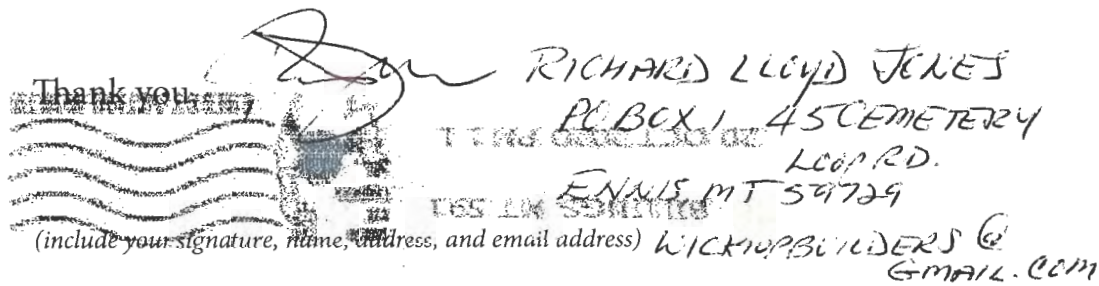 Thank you,
RICHARD LLOYD JONES
PO BOX 1 45 CEMETERY
LOOP RD.
ENNIS MT 59729
(include your signature, name, address, and email address) WICKIUPBUILDERS @
GMAIL.COM